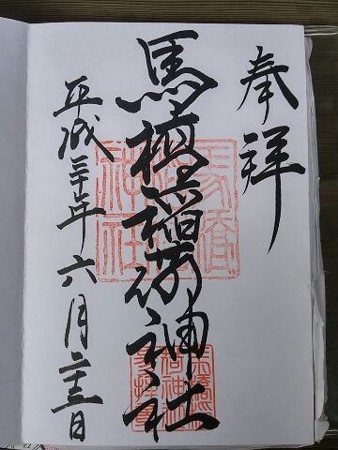 奉拝
馬橋稲荷神社
平成三十年六月二十三日